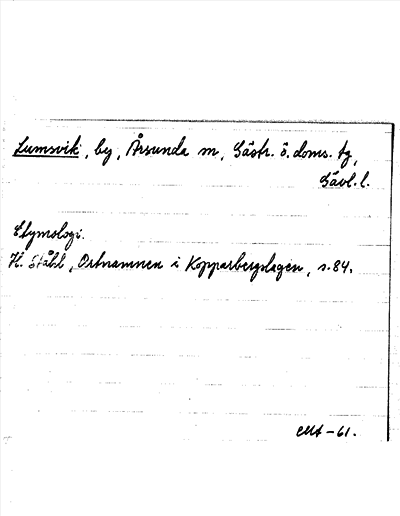 Lumsvik, by, Årsunda sn, Gästr. ö. doms. tg,
Gävl. l.
Etymologi.
H. Ståhl, Ortnamnen i Kopparbergslagen, s. 84.
-61.